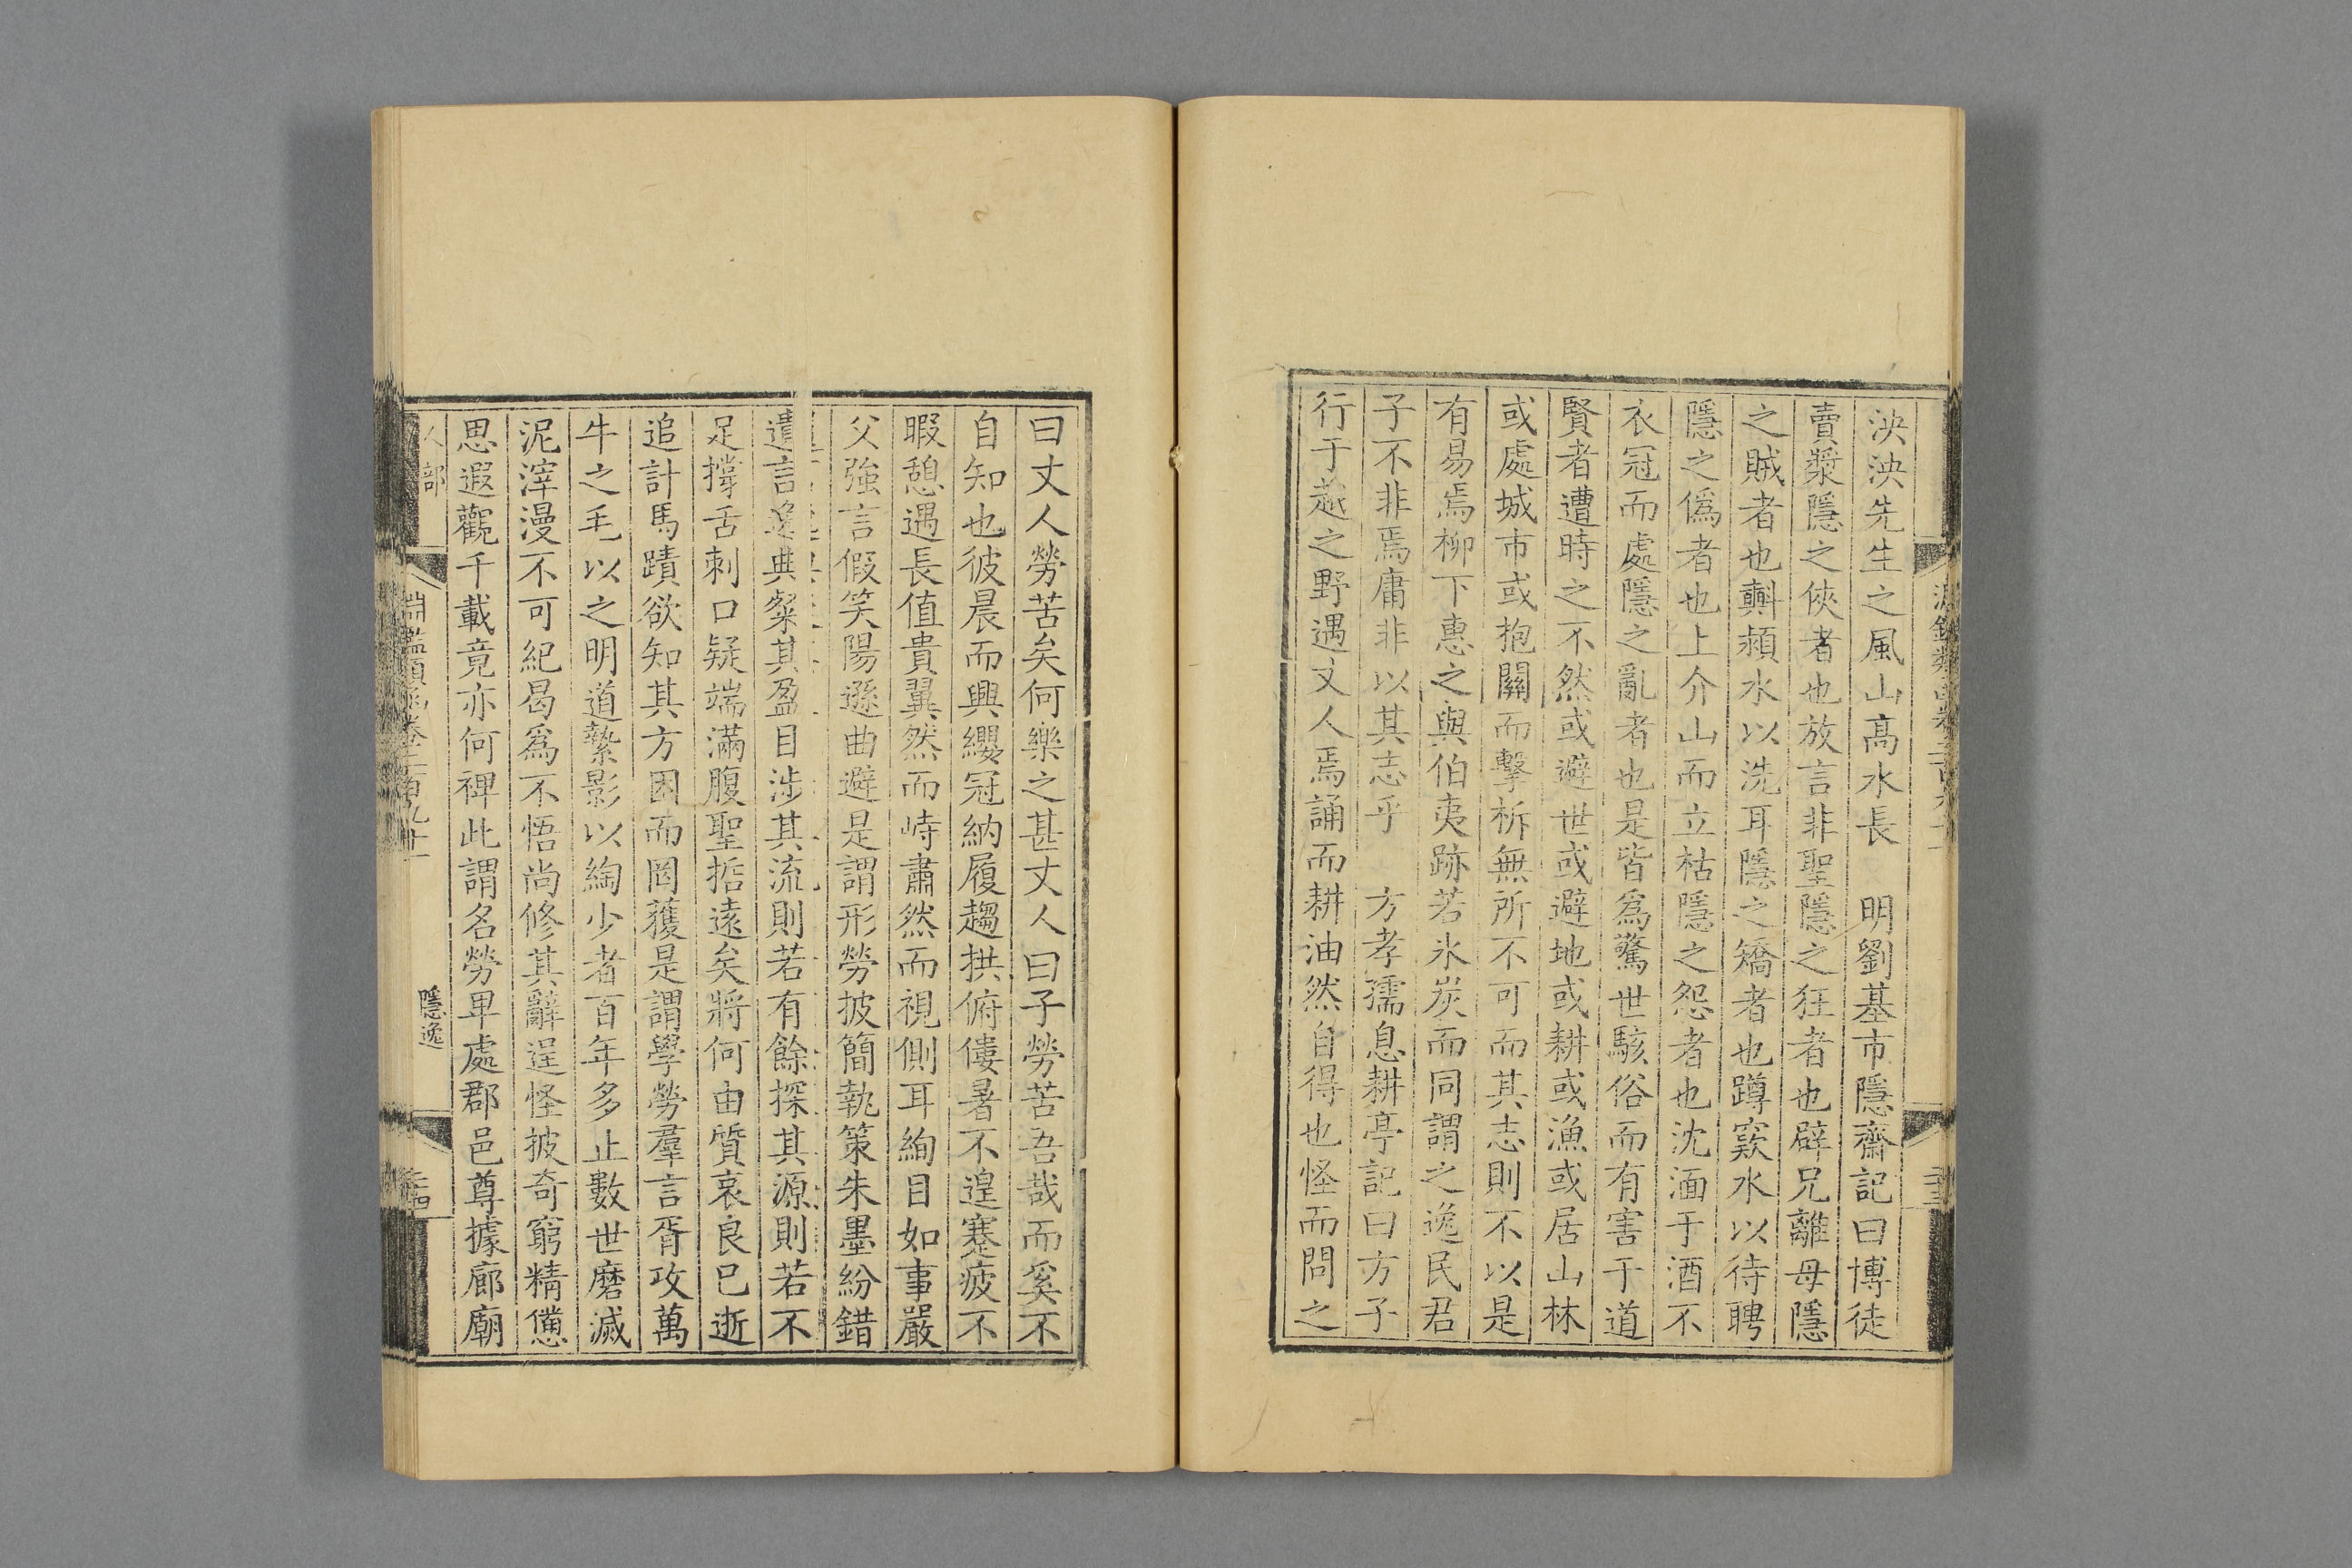 泱泱先生之風山高水長　明劉基市隱齋記曰博徒
賣漿隱之俠者也放言非聖隱之狂者也辟兄離母隱
之賊者也㪺潁水以洗耳隱之矯者也蹲窾水以待聘
隱之僞者也上介山而立枯隱之怨者也沈湎于酒不
衣冠而處隱之亂者也是皆爲驚世駭俗而有害于道
賢者遭時之不然或避世或避地或耕或漁或居山林
或處城市或抱關而擊柝無所不可而其志則不以是
有易焉柳下惠之與伯夷跡若氷炭而同謂之逸民君
子不非焉庸非以其志乎　方孝孺息耕亭記曰方子
行于越之野遇丈人焉誦而耕油然自得也怪而問之
曰丈人勞苦矣何樂之甚丈人曰子勞苦吾哉而奚不
自知也彼晨而興纓冠納履趨拱俯僂暑不遑蹇疲不
暇憩遇長值貴翼然而峙肅然而視側耳絢目如事嚴
父強言假笑陽遜曲避是謂形勞披簡執策朱墨紛錯
遺言逸典粲其盈目涉其流則若有餘探其源則若不
足撐舌刺口疑端滿腹聖悊遠矣將何由質哀良已逝
追計馬蹟欲知其方困而罔獲是謂學勞羣言胥攻萬
牛之毛以之明道縶影以綯少者百年多止數世磨滅
泥滓漫不可紀曷爲不悟尚修其辭逞怪披奇窮精憊
思遐觀千載竟亦何裨此謂名勞卑處郡邑尊據廊廟
人部
淵鑑類函卷二百九十一
隱逸